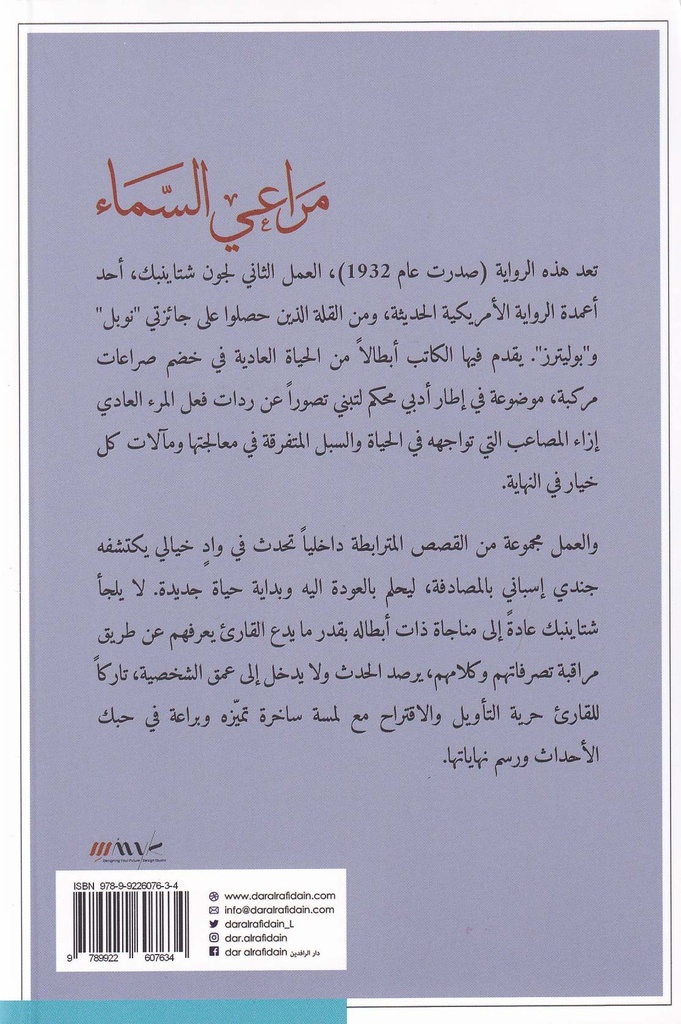 مَرَاعِي السَّمَاء
تعد هذه الرواية (صدرت عام 1932)، العمل الثاني لجون شتاينبك، أحد
أعمدة الرواية الأمريكية الحديثة، ومن القلة الذين حصلوا على جائزتي "نوبل"
و"بوليترز". يقدم فيها الكاتب أبطالاً من الحياة العادية في خضم صراعات
مركبة، موضوعة في إطار أدبي محكم لتبني تصوراً عن ردات فعل المرء العادي
إزاء المصاعب التي تواجهه في الحياة والسبل المتفرقة في معالجتها ومآلات كل
خيار في النهاية.
والعمل مجموعة من القصص المترابطة داخلياً تحدث في وادٍ خيالي يكتشفه
جندي إسباني بالمصادفة، ليحلم بالعودة اليه وبداية حياة جديدة. لا يلجأ
شتاينبك عادةً إلى مناجاة ذات أبطاله بقدر ما يدع القارئ يعرفهم عن طريق
مراقبة تصرفاتهم وكلامهم، يرصد الحدث ولا يدخل إلى عمق الشخصية، تاركاً
للقارئ حرية التأويل والاقتراح مع لمسة ساخرة تميّزه وبراعة في حبك
الأحداث ورسم نهاياتها.
ISBN 978-9-9226076-3-4
9 789922 607634
www.daralrafidain.com
info@daralrafidain.com
daralrafidain_L
dar.alrafidain
dar alrafidain دار الرافدين